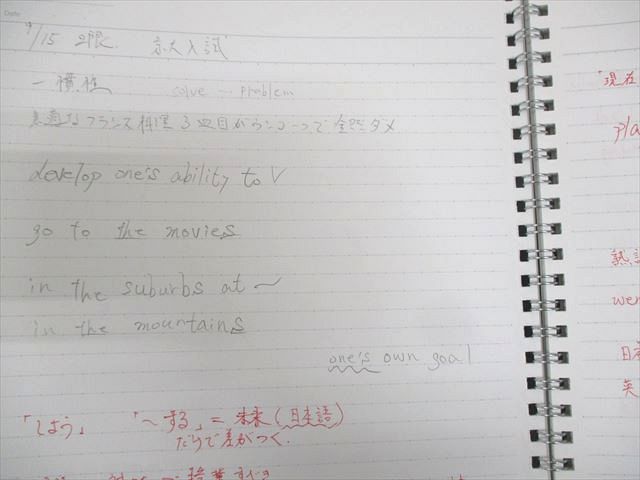 9/15 2限. 京大入試
一貫性 solve … problem
素敵なフランス料理 3皿目がウンコ一つで全然ダメ
develop one's ability to V
go to the movies
in the suburbs at ~
in the mountains
one's own goal
「しよう」 「~する」=未来(日本語)
だけで差がつく.
「現在
pla
熟語
wer
日本
英